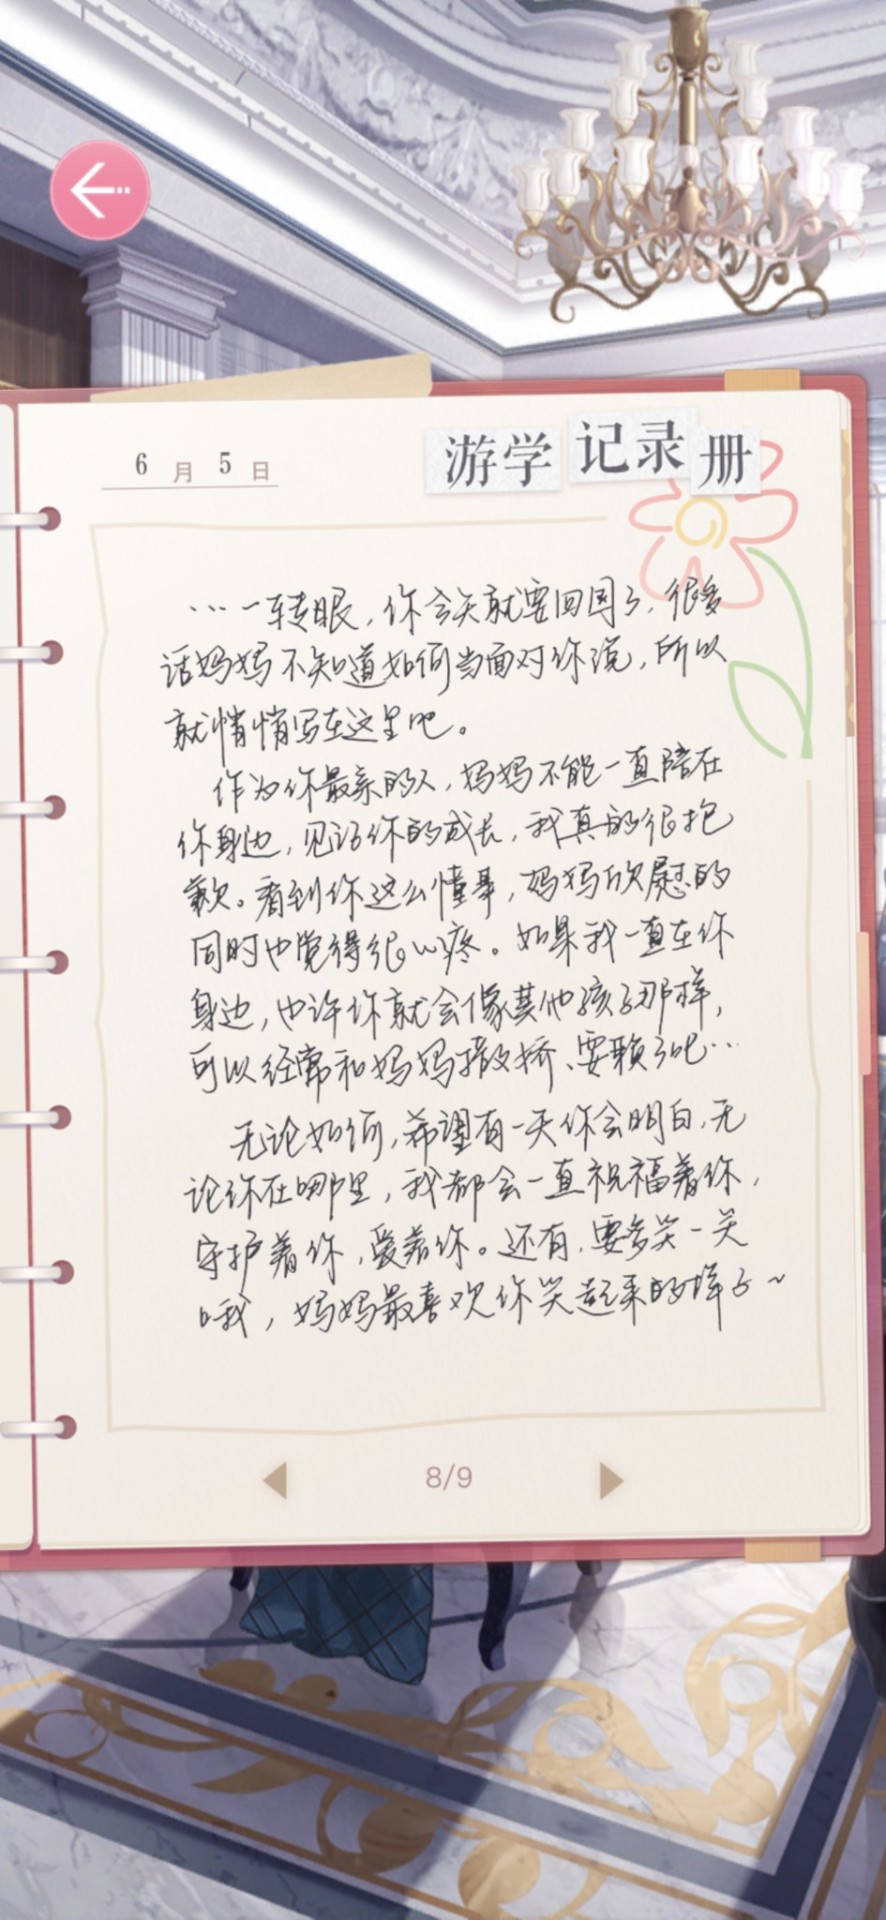 6月5日
游学记录册
…一转眼，你今天就要回国了，很多
话妈妈不知道如何当面对你说，所以
就悄悄写在这里吧。
作为你最亲的人，妈妈不能一直陪在
你身边，见证你的成长，我真的很抱
歉。看到你这么懂事，妈妈欣慰的
同时也觉得很心疼。如果我一直在你
身边，也许你就会像其他孩子那样，
可以经常和妈妈撒娇、耍赖了吧…
无论如何，希望有一天你会明白，无
论你在哪里，我都会一直祝福着你，
守护着你，爱着你。还有，要多笑一笑
哦，妈妈最喜欢你笑起来的样子~
8/9